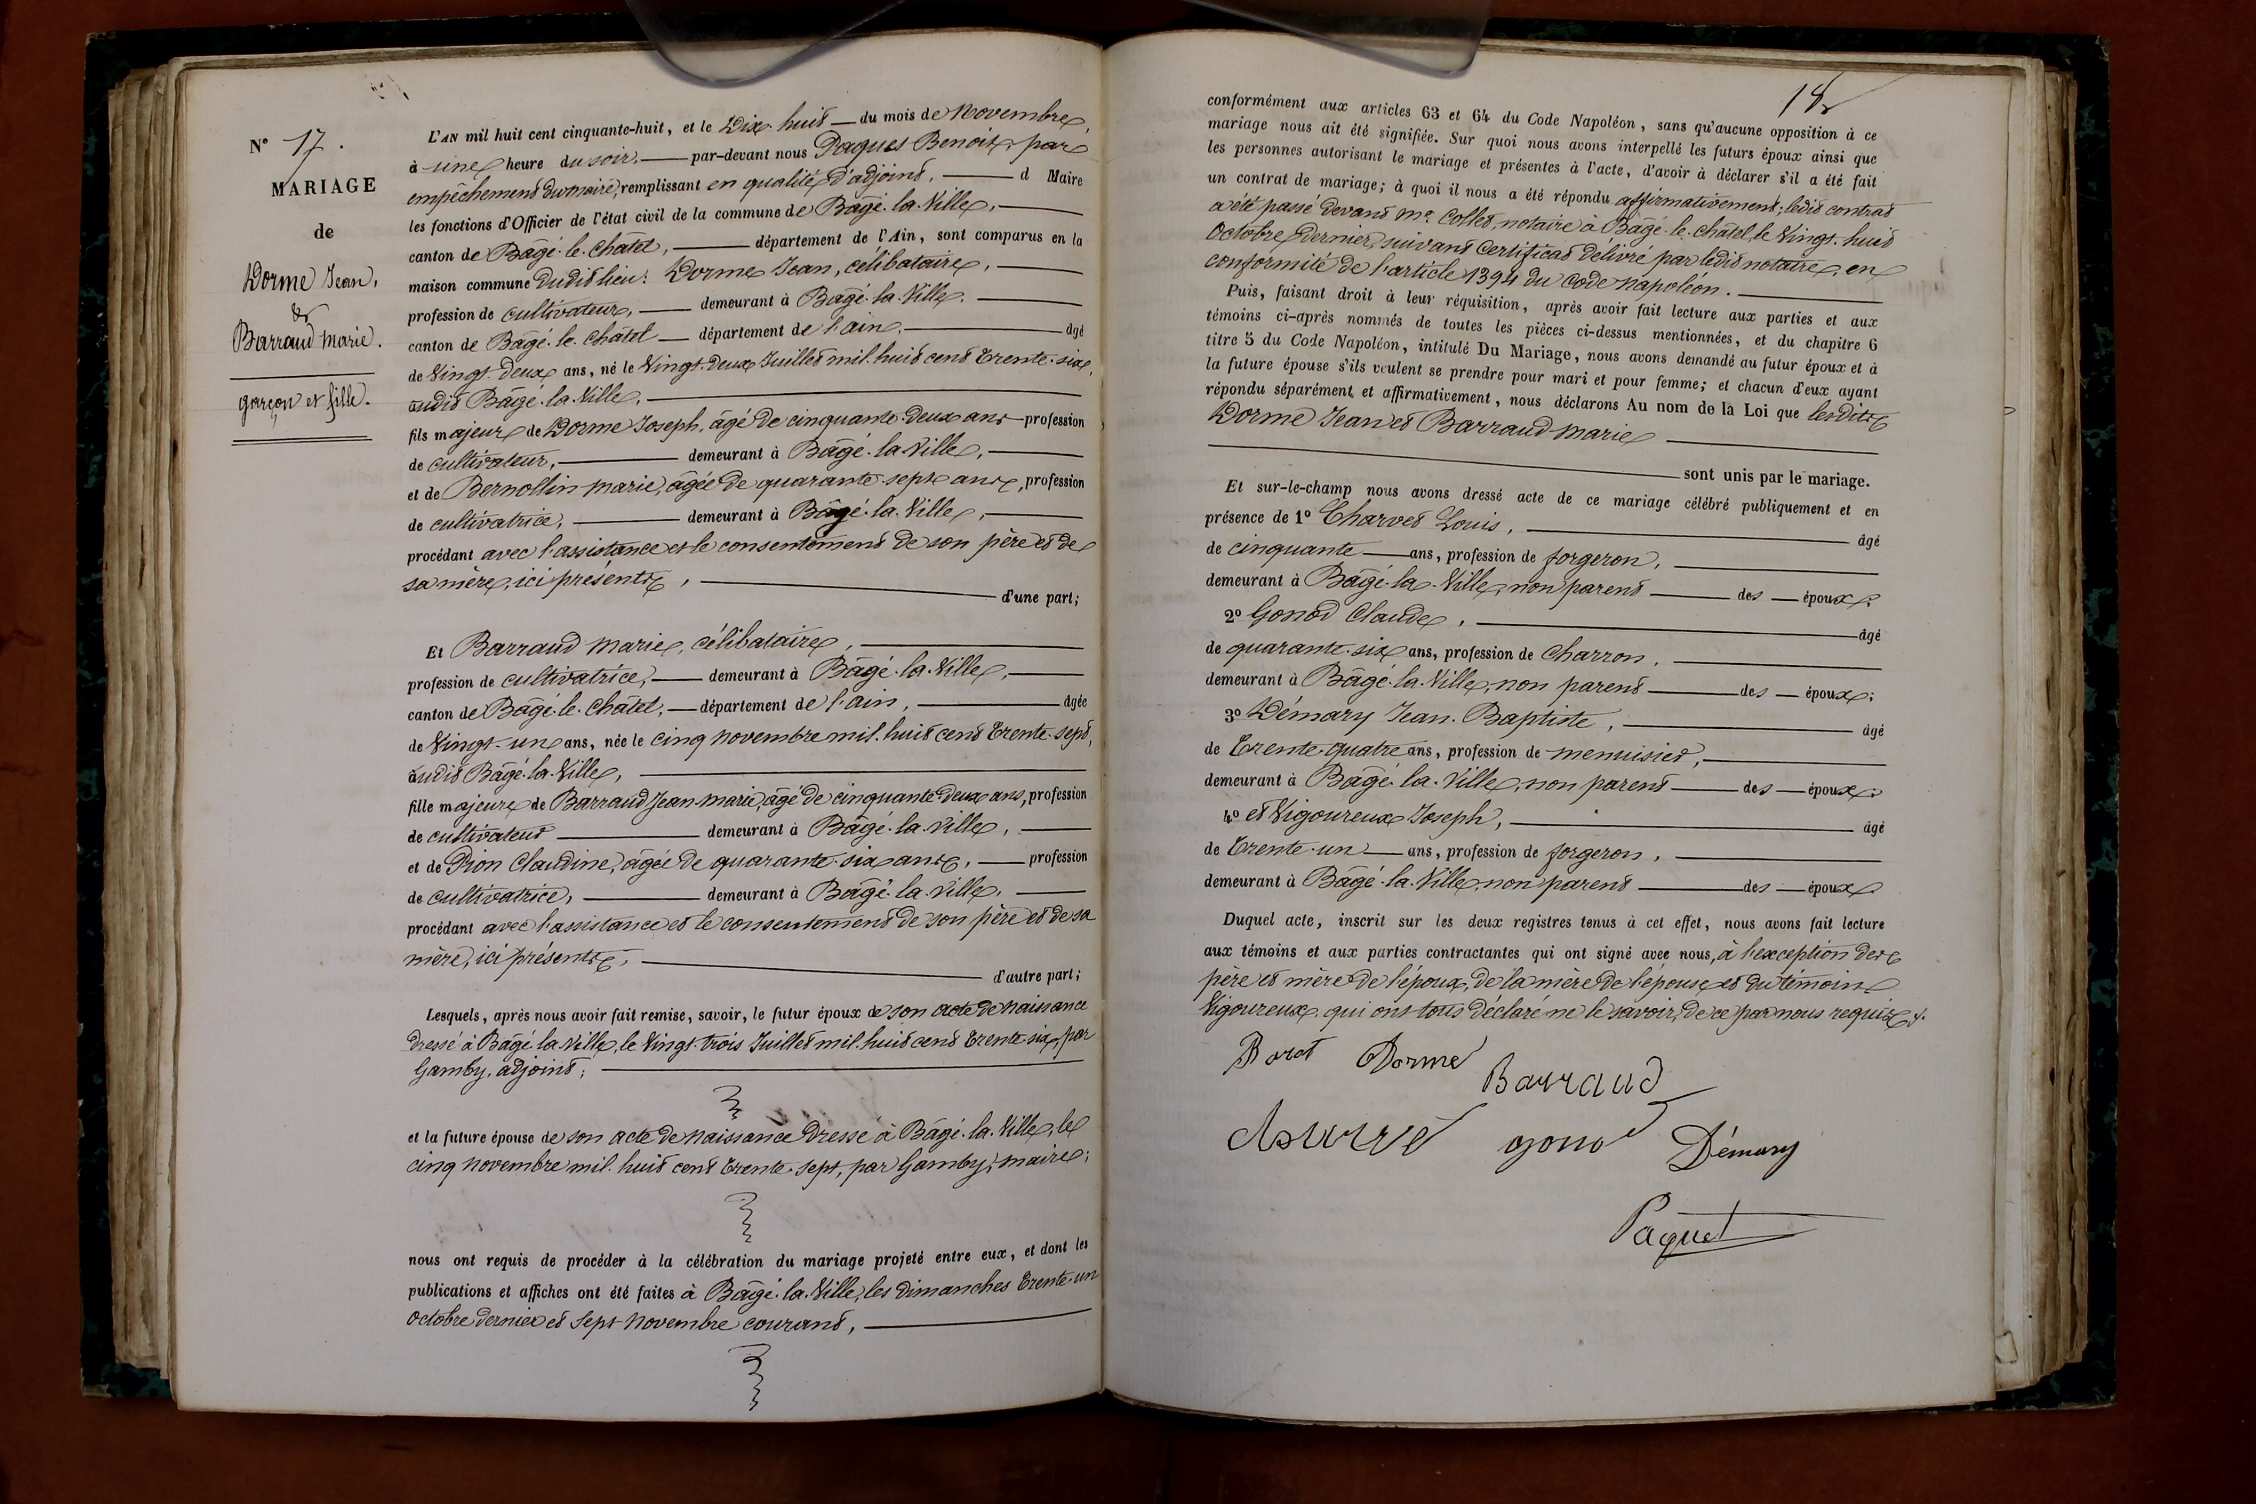 N° 17.
MARIAGE
de
Dorme Jean,
&
Barraud Marie.
garçon et fille.
L'AN mil huit cent cinquante-huit, et le Dix-huit du mois de Novembre,
à une heure du soir, par-devant nous Paquet Benoit, par
empêchement du maire, remplissant en qualité d'adjoint, d Maire
les fonctions d'Officier de l'état civil de la commune de Bâgé-la-Ville,
canton de Bâgé-le-Châtel, département de l'Ain, sont comparus en la
maison commune dudit lieu: Dorme Jean, célibataire,
profession de cultivateur, demeurant à Bâgé-la-Ville,
canton de Bâgé-le-Châtel département de l'ain, âgé
de Vingt-deux ans, né le Vingt-deux Juillet mil-huit cent trente-six,
audit Bâgé-la-Ville,
fils majeur de Dorme Joseph, âgé de cinquante-deux ans profession
de cultivateur, demeurant à Bâgé-la-Ville,
et de Bernollin Marie, âgée de quarante-sept ans, profession
de cultivatrice, demeurant à Bâgé-la-Ville,
procédant avec l'assistance et le consentement de son père et de
sa mère, ici présents, d'une part;
Et Barraud Marie, célibataire,
profession de cultivatrice, demeurant à Bâgé-la-Ville,
canton de Bâgé-le-Châtel, département de l'ain, âgée
de Vingt-un ans, née le cinq novembre mil-huit cent trente-sept,
audit Bâgé-la-Ville,
fille majeure de Barraud Jean-Marie, âgé de cinquante-deux ans, profession
de cultivateur demeurant à Bâgé-la-Ville,
et de Pion Claudine, âgée de quarante-six ans, profession
de cultivatrice, demeurant à Bâgé-la-Ville,
procédant avec l'assistance et le consentement de son père et de sa
mère, ici présents, d'autre part;
Lesquels, après nous avoir fait remise, savoir, le futur époux de son acte de naissance
dressé à Bâgé-la-Ville, le Vingt-trois Juillet mil-huit cent trente-six, par
Gamby, adjoint;
et la future épouse de son acte de naissance dressé à Bâgé-la-Ville, le
cinq novembre mil-huit cent trente-sept, par Gamby, maire;
nous ont requis de procéder à la célébration du mariage projeté entre eux, et dont les
publications et affiches ont été faites à Bâgé-la-Ville, les dimanches trente-un
octobre dernier et sept novembre courant,
18
conformément aux articles 63 et 64 du Code Napoléon, sans qu'aucune opposition à ce
mariage nous ait été signifiée. Sur quoi nous avons interpellé les futurs époux ainsi que
les personnes autorisant le mariage et présentes à l'acte, d'avoir à déclarer s'il a été fait
un contrat de mariage; à quoi il nous a été répondu affirmativement; ledit contrat
a été passé devant Me. Collet, notaire à Bâgé-le-châtel, le Vingt-huit
Octobre dernier, suivant Certificat délivré par ledit notaire, en
conformité de l'article 1394 du Code Napoléon.
Puis, faisant droit à leur réquisition, après avoir fait lecture aux parties et aux
témoins ci-après nommés de toutes les pièces ci-dessus mentionnées, et du chapitre 6
titre 5 du Code Napoléon, intitulé Du Mariage, nous avons demandé au futur époux et à
la future épouse s'ils veulent se prendre pour mari et pour femme; et chacun d'eux ayant
répondu séparément et affirmativement, nous déclarons Au nom de la Loi que lesdits
Dorme Jean et Barraud Marie
sont unis par le mariage.
Et sur-le-champ nous avons dressé acte de ce mariage célébré publiquement et en
présence de 1° Charvet Louis, âgé
de cinquante ans, profession de forgeron,
demeurant à Bâgé-la-Ville, non parent des époux;
2° Gonod Claude, âgé
de quarante-six ans, profession de Charron,
demeurant à Bâgé-la-Ville, non parent des époux;
3° Démary Jean-Baptiste, âgé
de trente-quatre ans, profession de menuisier,
demeurant à Bâgé-la-Ville, non parent des époux;
4° et Vigoureux Joseph, âgé
de trente-un ans, profession de forgeron,
demeurant à Bâgé-la-Ville, non parent des époux
Duquel acte, inscrit sur les deux registres tenus à cet effet, nous avons fait lecture
aux témoins et aux parties contractantes qui ont signé avec nous, à l'exception des
père et mère de l'époux, de la mère de l'épouse et du témoin
Vigoureux qui ont tous déclaré ne le savoir, de ce par nous requis.
Dorme
Barraud
gonod Démary
Paquet